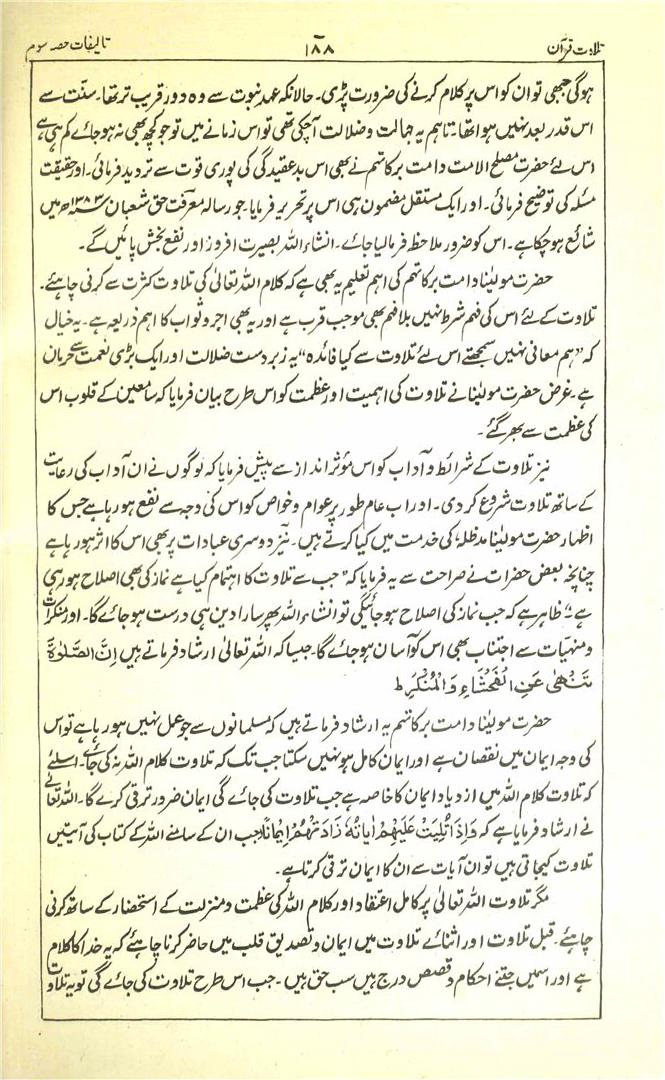 تلاوت قرآن ۱۸۸ تالیفات حصہ سوم
ہوگی جبھی تو ان کو اس پر کلام کرنے کی ضرورت پڑی۔ حالانکہ عہد نبوت سے وہ دور قریب تر تھا۔ سنّت سے
اس قدر بعد نہیں ہوا تھا۔ تاہم یہ جہالت وضلالت آچکی تھی تو اس زمانے میں تو جو کچھ بھی نہ ہو جائے کم ہی ہے
اس لئے حضرت مصلح الامت دامت برکاتہم نے بھی اس بدعقیدگی کی پوری قوت سے تردید فرمائی۔ اور حقیقت
مسئلہ کی توضیح فرمائی۔ اور ایک مستقل مضمون ہی اس پر تحریر فرمایا۔ جو رسالہ معرفت حق شعبان ۱۳۸۳ھ میں
شائع ہوچکا ہے۔ اس کو ضرور ملاحظہ فرما لیا جائے۔ انشاء اللہ بصیرت افروز اور نفع بخش پائیں گے۔
حضرت مولیٰنا دامت برکاتہم کی اہم تعلیم یہ بھی ہے کہ کلام اللہ تعالیٰ کی تلاوت کثرت سے کرنی چاہئے۔
تلاوت کے لئے اس کی فہم شرط نہیں بلا فہم بھی موجب قرب ہے اور یہ بھی اجر و ثواب کا اہم ذریعہ ہے۔ یہ خیال
کہ ”ہم معانی نہیں سمجھتے اس لئے تلاوت سے کیا فائدہ“ یہ زبردست ضلالت اور ایک بڑی نعمت سے حرمان
ہے۔ غرض حضرت مولیٰنا نے تلاوت کی اہمیت اور عظمت کو اس طرح بیان فرمایا کہ سامعین کے قلوب اس
کی عظمت سے بھر گئے۔
نیز تلاوت کے شرائط و آداب کو اس مؤثر انداز سے پیش فرمایا کہ لوگوں نے ان آداب کی رعایت
کے ساتھ تلاوت شروع کردی۔ اور اب عام طور پر عوام و خواص کو اس کی وجہ سے نفع ہو رہا ہے جس کا
اظہار حضرت مولیٰنا مدظلہٗ کی خدمت میں کیا کرتے ہیں۔ نیز دوسری عبادات پر بھی اس کا اثر ہو رہا ہے
چنانچہ بعض حضرات نے صراحت سے یہ فرمایا کہ ”جب سے تلاوت کا اہتمام کیا ہے نماز کی بھی اصلاح ہو رہی
ہے“۔ ظاہر ہے کہ جب نماز کی اصلاح ہو جائیگی تو انشاء اللہ پھر سارا دین ہی درست ہو جائے گا۔ اور منکرات
و منہیات سے اجتناب بھی اس کو آسان ہو جائے گا۔ جیسا کہ اللہ تعالیٰ ارشاد فرماتے ہیں اِنَّ الصَّلٰوۃَ
تَنْھٰی عَنِ الْفَحْشَاءِ وَالْمُنْکَرِ ط
حضرت مولیٰنا دامت برکاتہم یہ ارشاد فرماتے ہیں کہ مسلمانوں سے جو عمل نہیں ہو رہا ہے تو اس
کی وجہ ایمان میں نقصان ہے اور ایمان کامل ہو نہیں سکتا جب تک کہ تلاوت کلام اللہ نہ کی جائے۔ اسلئے
کہ تلاوت کلام اللہ میں ازدیاد ایمان کا خاصہ ہے جب تلاوت کی جائے گی ایمان ضرور ترقی کرے گا۔ اللہ تعالےٰ
نے ارشاد فرمایا ہے کہ وَاِذَا تُلِیَتْ عَلَیْھِمْ اٰیَاتُہٗ زَادَتْھُمْ اِیْمَانًا جب ان کے سامنے اللہ کے کتاب کی آیتیں
تلاوت کیجاتی ہیں تو ان آیات سے ان کا ایمان ترقی کرتا ہے۔
مگر تلاوت اللہ تعالیٰ پر کامل اعتقاد اور کلام اللہ کی عظمت و منزلت کے استحضار کے ساتھ کرنی
چاہئے۔ قبل تلاوت اور اثنائے تلاوت میں ایمان و تصدیق قلب میں حاضر کرنا چاہئے کہ یہ خدا کا کلام
ہے اور اسمیں جتنے احکام و قصص درج ہیں سب حق ہیں۔ جب اس طرح تلاوت کی جائے گی تو یہ تلاوت